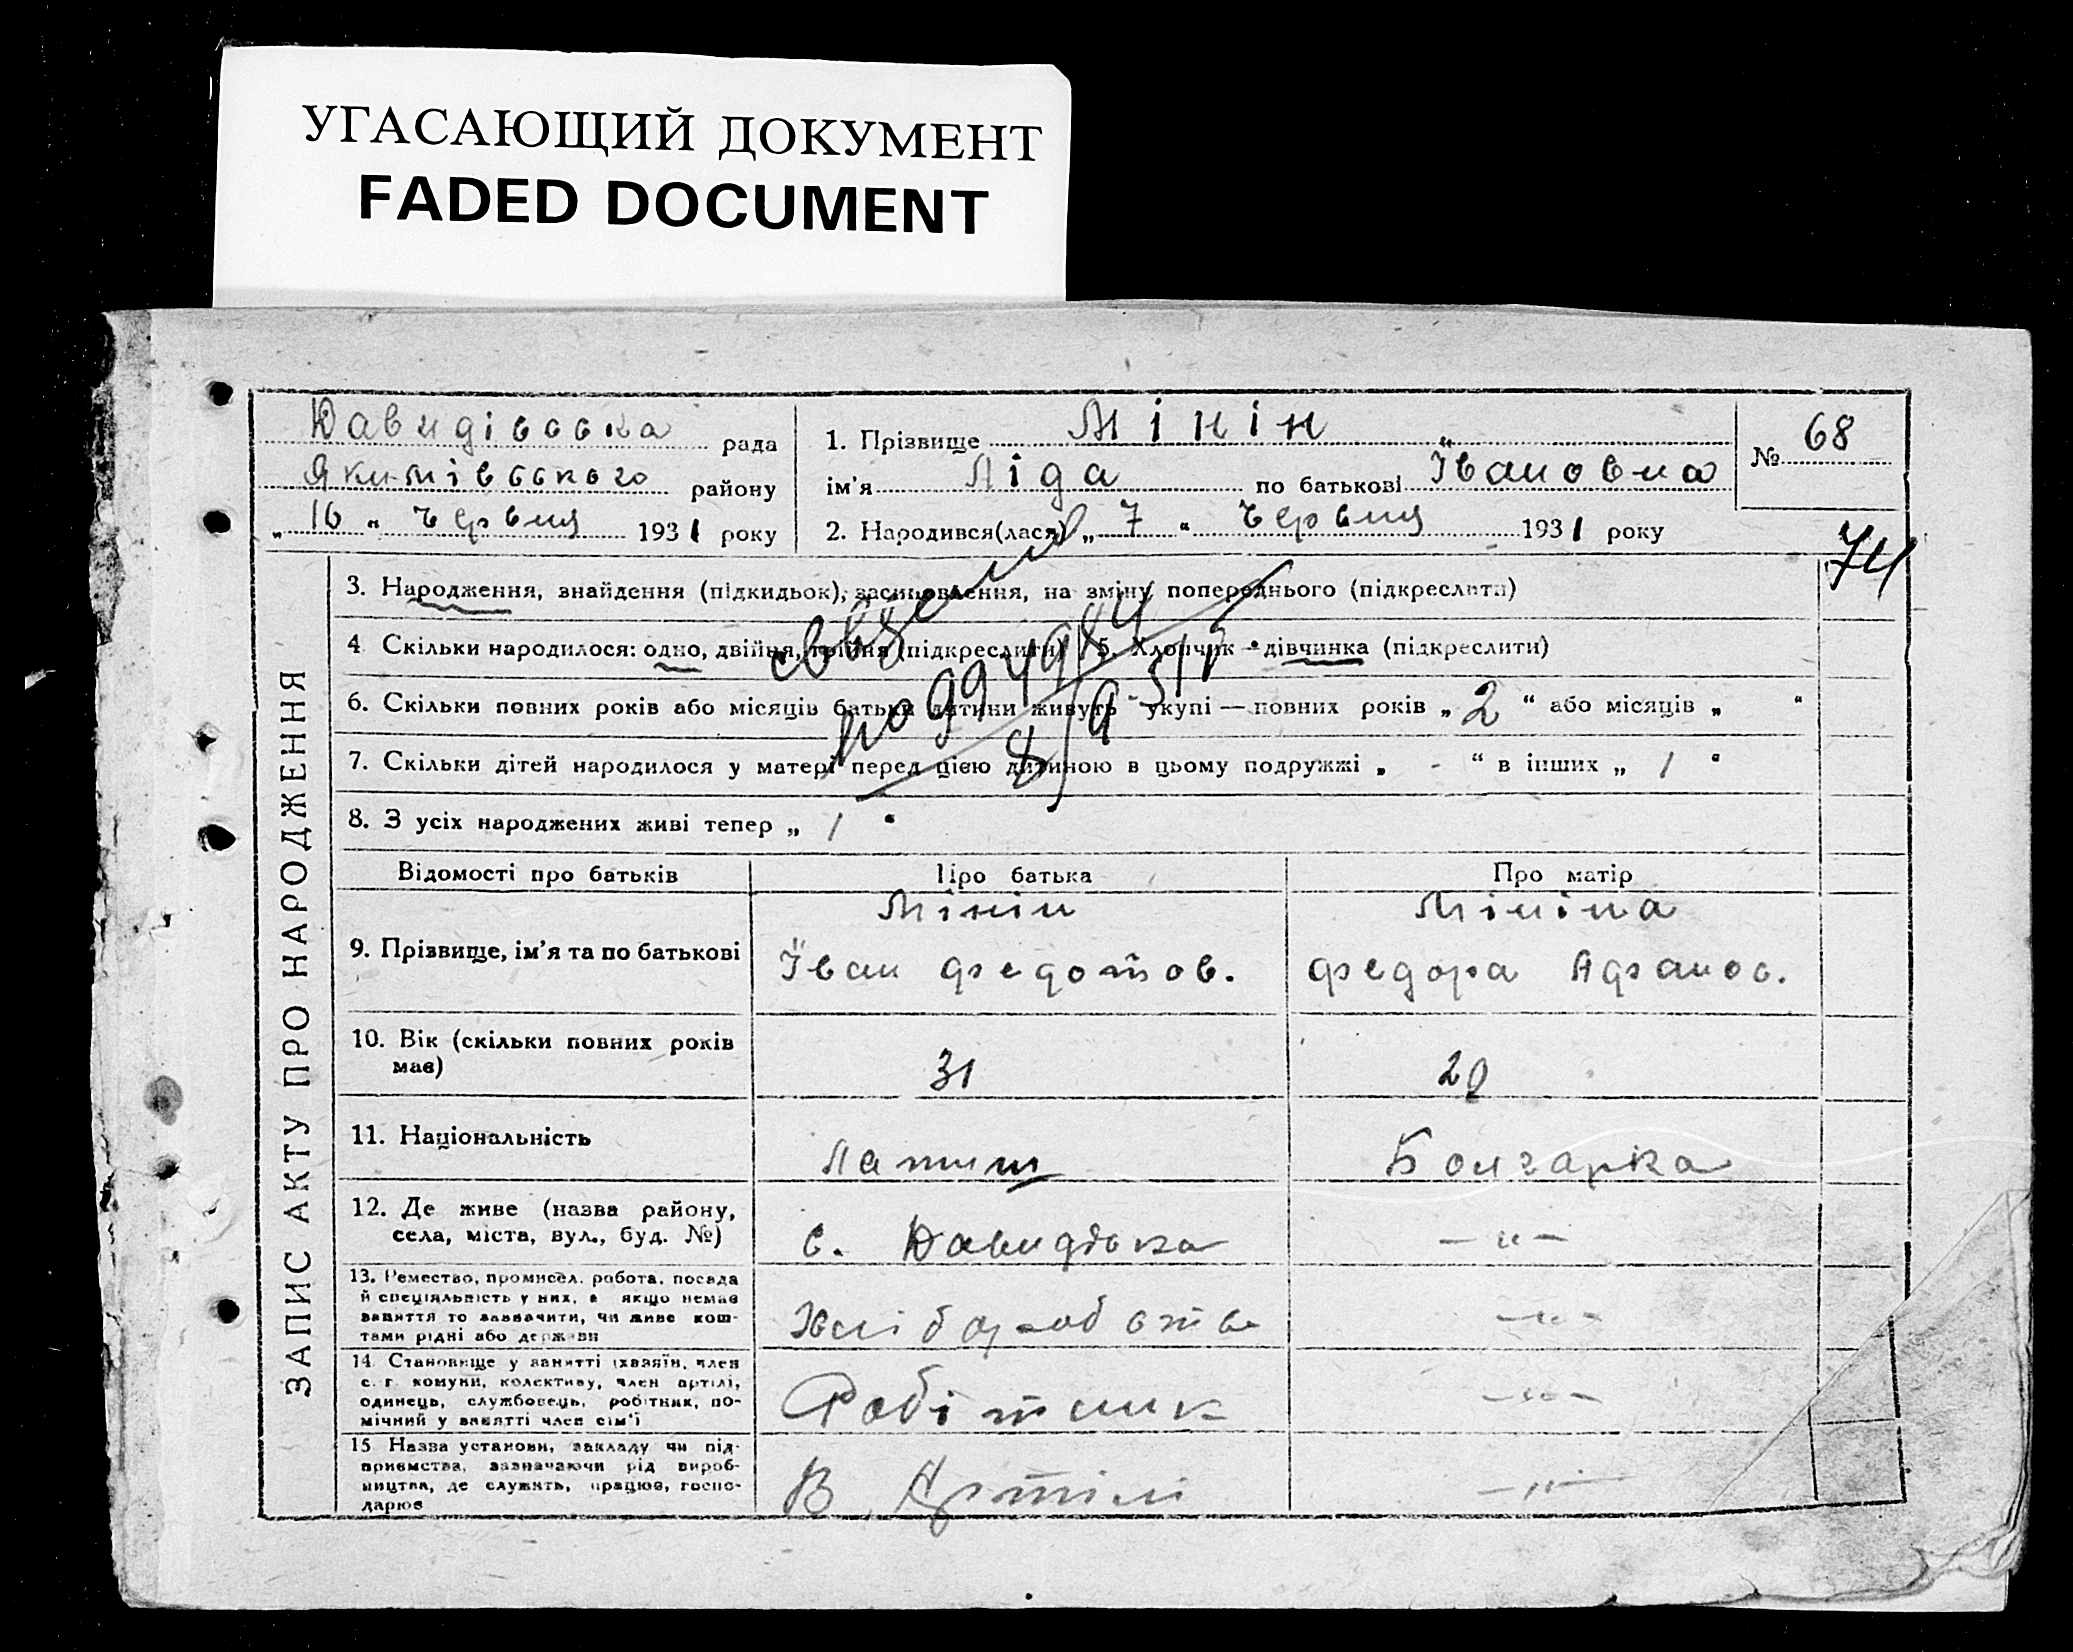 УГАСАЮЩИЙ ДОКУМЕНТ
FADED DOCUMENT
Давидівська рада
Якимівського району
„ 16 “ червня 1931 року
1. Прізвище Мінін
ім'я Ліда по батькові Івановна
2. Народився(лася) „ 7 “ червня 1931 року
№ 68
74
ЗАПИС АКТУ ПРО НАРОДЖЕННЯ
3. Народження, знайдення (підкидьок), засиновлення, на зміну попереднього (підкреслити)
4 Скільки народилося: одно, двійня, трійня (підкреслити) 5. Хлопчик – дівчинка (підкреслити)
6. Скільки повних років або місяців батьки дитини живуть укупі — повних років „ 2 “ або місяців „ “
7. Скільки дітей народилося у матері перед цією дитиною в цьому подружжі „ - “ в інших „ 1 “
8. З усіх народжених живі тепер „ 1 “
Відомості про батьків Про батька Про матір
9. Прізвище, ім'я та по батькові
Мінін
Іван Федотов.
Мініна
Федора Афанос.
10. Вік (скільки повних років має)
31
11. Національність
Латиш
Болгарка
12. Де живе (назва району,
села, міста, вул., буд. №)
с. Давидівка
— „ —
13. Ремество, промисел, робота, посада
й спеціяльність у них, а якщо немає
заняття то зазначити, чи живе кош-
тами рідні або держави
— „ —
14. Становище у занятті (хазяїн, член
с. г. комуни, колективу, член артілі,
одинець, службовець, робітник, по-
мічний у занятті член сім'ї
Робітник
— „ —
15 Назва установи, закладу чи під-
приємства, зазначаючи рід вироб-
ництва, де служить, працює, госпо-
дарює
В Артілі
— „ —